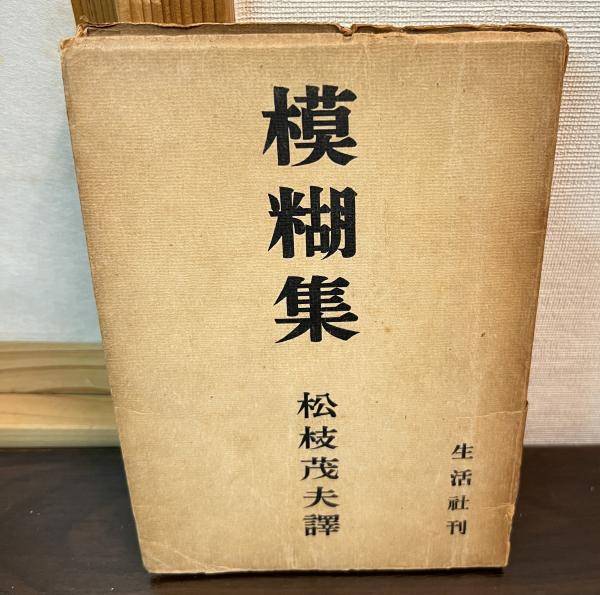 模糊集
松枝茂夫譯
生活社刊